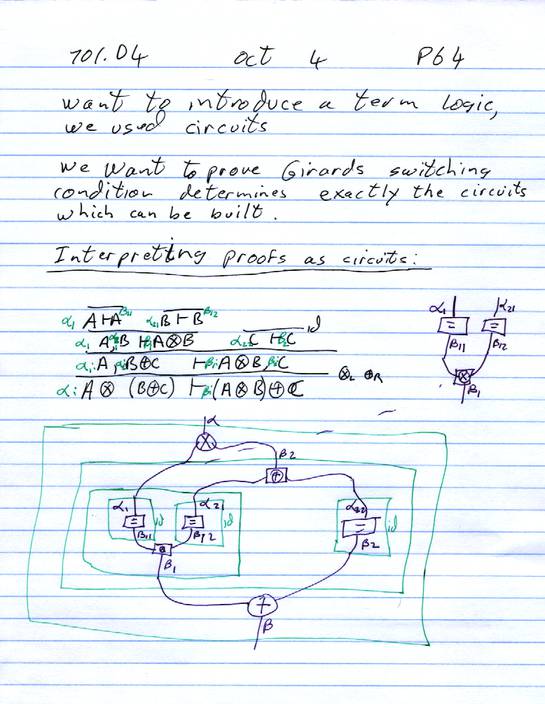 701.04 oct 4 P64
want to introduce a term logic,
we used circuits
we want to prove Girards switching
condition determines exactly the circuits
which can be built.
Interpreting proofs as circuits:
α₁ A ⊢ A β₁₁ α₂₁ B ⊢ B β₁₂
α₁ A, B ⊢ β₁ A⊗B α₂₂ C ⊢ β₂ C id
α₁: A, B⊕C ⊢ β₁: A⊗B, β₂ C
α: A ⊗ (B⊕C) ⊢ β: (A⊗B)⊕C ⊗L ⊕R
α₁ α₂₁
= =
β₁₁ β₁₂
⊗
β₁
α
⊗
β₂
⊕
α₁ α₂₁ α₂₂
= id = id = id
β₁₁ β₁₂ β₂
⊗
β₁
+
β